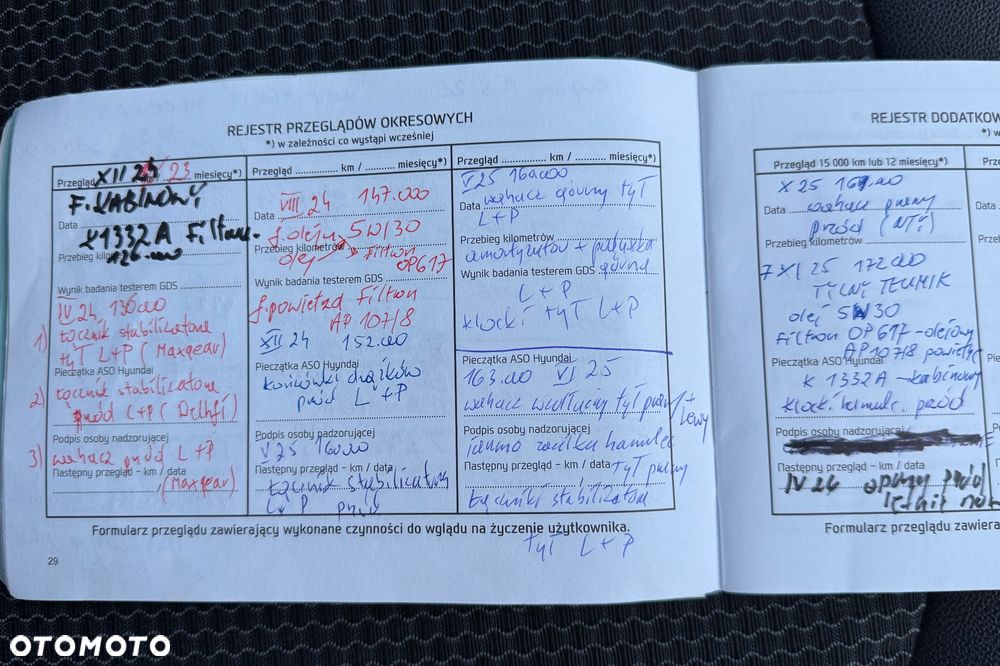 REJESTR PRZEGLĄDÓW OKRESOWYCH
*) w zależności co wystąpi wcześniej
Przegląd XII 23 miesięcy*)
F. KABINOWY
Data
K1332A Filtron.
Przebieg kilometrów
126.000
Wynik badania testerem GDS
IV 24, 136000
1) Łącznik stabilizatora
tył L+P (Maxgear)
Pieczątka ASO Hyundai
2) Łącznik stabilizatora
przód L+P (Delhfi)
Podpis osoby nadzorującej
3) wahacz przód L+P
Następny przegląd – km / data
(Maxgear)
Przegląd .............. km / .............. miesięcy*)
VIII 24 147.000
Data
f. oleju 5W/30
Przebieg kilometrów
olej Filtron
OP617
Wynik badania testerem GDS
f. powietrza Filtron
AP 107/8
XII 24 152.000
Pieczątka ASO Hyundai
Końcówki drążków
przód L+P
Podpis osoby nadzorującej
V 25 160.000
Następny przegląd – km / data
Łącznik stabilizatora
L+P przód
Przegląd .............. km / .............. miesięcy*)
V 25 160.000
Data wahacz górny tył
L+P
Przebieg kilometrów
amortyzatory + poduszka
Wynik badania testerem GDS górna
L+P
klocki tył L+P
Pieczątka ASO Hyundai
163.000 VI 25
wahacz wzdłużny tył prawy + Lewy
Podpis osoby nadzorującej
hamulec
Następny przegląd – km / data tył prawy
Łączniki stabilizatora
tył L+P
Formularz przeglądu zawierający wykonane czynności do wglądu na życzenie użytkownika.
29
REJESTR DODATKOW
*)
Przegląd 15 000 km lub 12 miesięcy*)
X 25
Data wahacz prawy
przód
Przebieg kilometrów
7 XI 25 172 000
olej 5W30
Filtron OP 617 – olejowy
AP 107/8
Pieczątka ASO Hyundai
K 1332A – kabinowy
klocki hamulc. przód
Podpis osoby nadzorującej
Następny przegląd – km / data
IV 26 opony
Formularz przeglądu zawiera
OTOMOTO